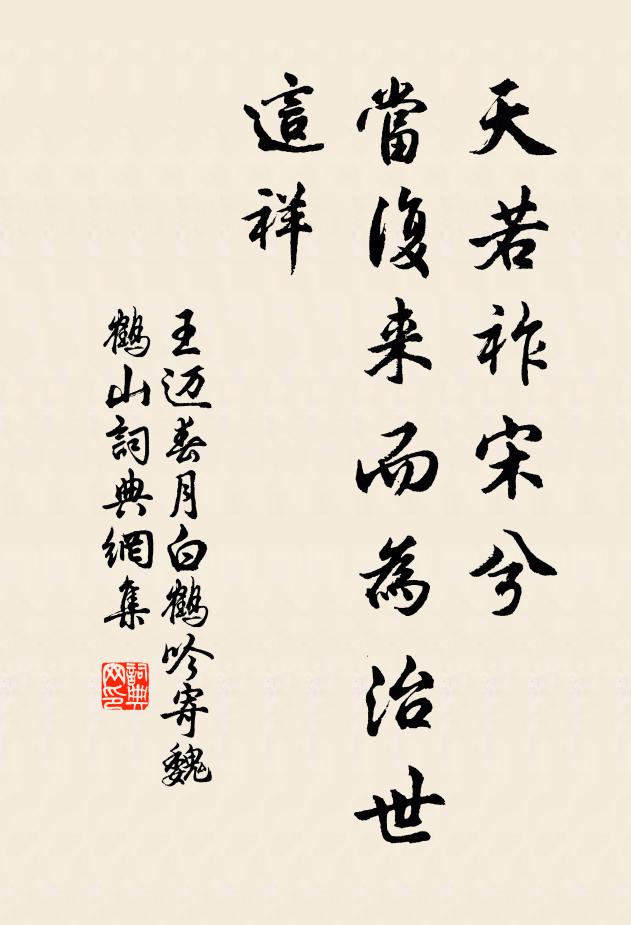 天若祚宋兮
當復来而為治世
這祥
王迈春月白鶴吟寄魏
鶴山詞典網集
詞典
网印